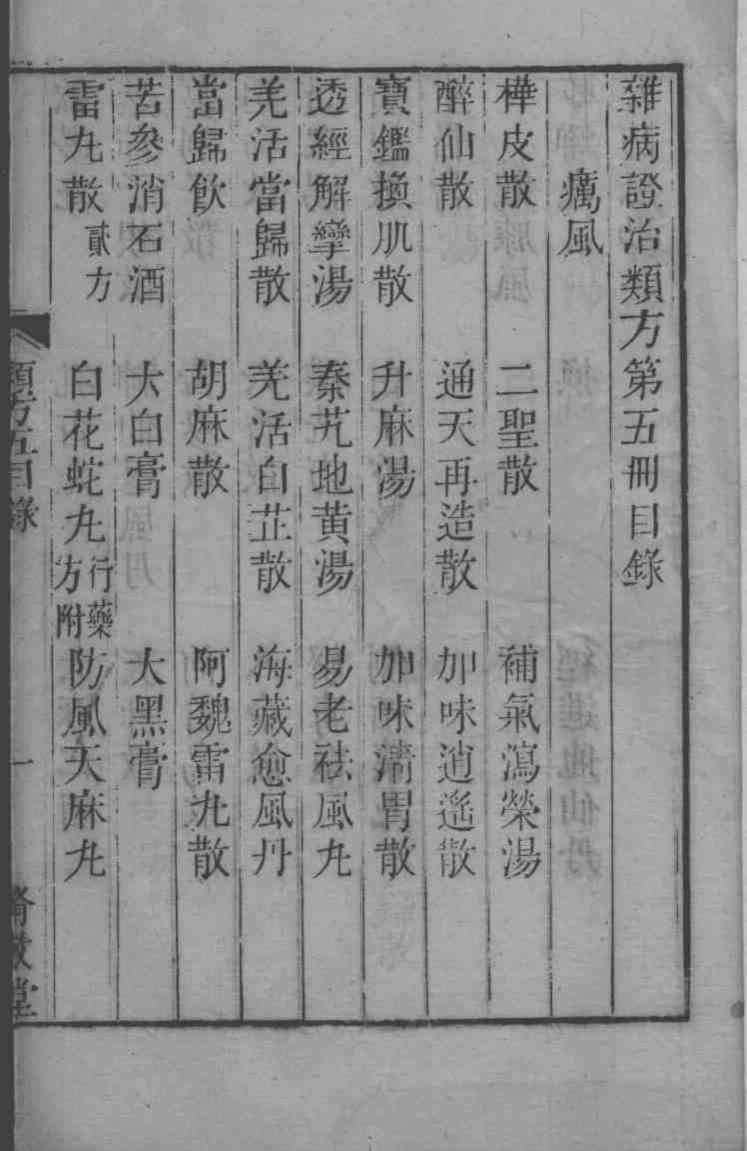 雜病證治類方第五冊目錄
癘風
樺皮散　二聖散　補氣瀉榮湯
醉仙散　通天再造散　加味逍遙散
寶鑑換肌散　升麻湯　加味清胃散
透經解攣湯　秦艽地黃湯　易老祛風丸
羌活當歸散　羌活白芷散　海藏愈風丹
當歸飲　胡麻散　阿魏雷丸散
苦參消石酒　大白膏　大黑膏
雷丸散貳方　白花蛇丸行藥方附　防風天麻丸
類方五目錄　一